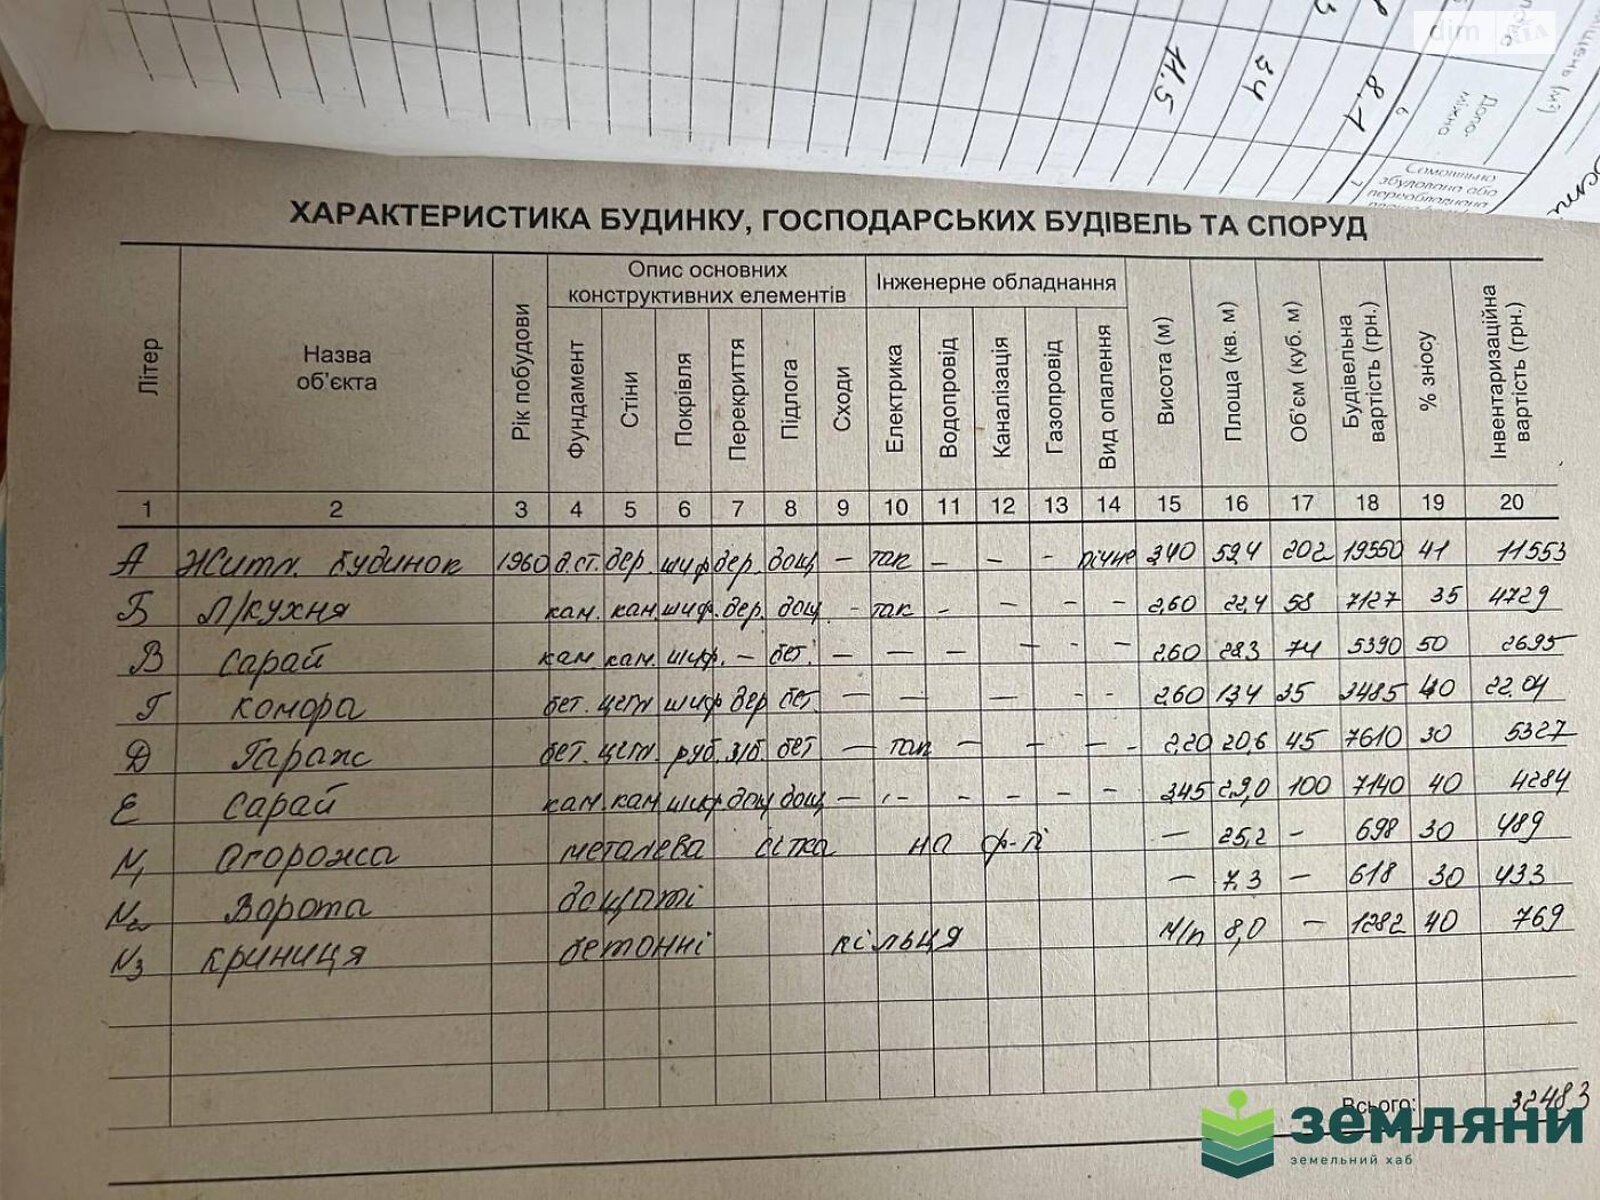 dim RIA
11.5
34
8.1
6
Допо-
міжна
(м²)
Самовільно
збудована або
переобладнана
7
ХАРАКТЕРИСТИКА БУДИНКУ, ГОСПОДАРСЬКИХ БУДІВЕЛЬ ТА СПОРУД
Літер
Назва
об'єкта
Рік побудови
Опис основних
конструктивних елементів
Фундамент
Стіни
Покрівля
Перекриття
Підлога
Сходи
Інженерне обладнання
Електрика
Водопровід
Каналізація
Газопровід
Вид опалення
Висота (м)
Площа (кв. м)
Об'єм (куб. м)
Будівельна
вартість (грн.)
% зносу
Інвентаризаційна
вартість (грн.)
1 2 3 4 5 6 7 8 9 10 11 12 13 14 15 16 17 18 19 20
А Житл. будинок 1960 д.ст. дер. шиф дер. дощ — так — — - пічне 340 59,4 202 19550 41 11553
Б Л/кухня кам. кам. шиф. дер. дощ - так - — — — 2,60 22,4 58 7127 35 4729
В Сарай кам кам. шиф. — бет. — — — — - — 2.60 28,3 74 5390 50 2695
Г Комора бет. цегл шиф дер бет. — — — - - 2.60 13,4 35 3485 40 2204
Д Гараж бет. цегл. руб. з/б. бет — так — — — - 2.20 20,6 45 7610 30 5327
Е Сарай кам. кам шиф дощ дощ — - - - - - 3,45 29,0 100 7140 40 4284
N1 Огорожа металева сітка на ф-ті — 25,2 — 698 30 489
N2 Ворота дощаті — 7.3 — 618 30 433
N3 Криниця бетонні кільця М/п 8,0 — 1282 40 769
Всього: 32483
земляни
земельний хаб